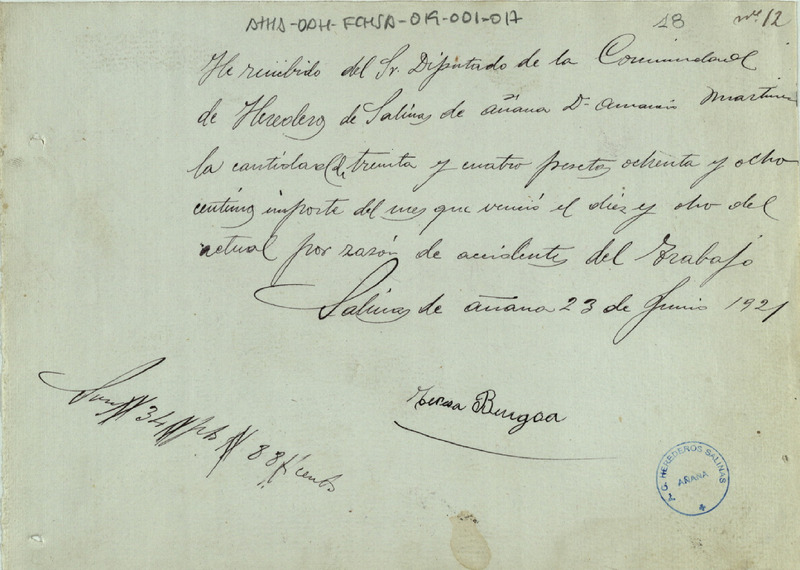 ATHA-DAH-FCHSA-019-001-017
18
nº 12
He recibido del Sr. Diputado de la Comunidad
de Herederos de Salinas de añana Dn amancio Martinez
la cantidad de treinta y cuatro pesetas ochenta y ocho
centimos importe del mes que venció el diez y ocho del
actual por razón de accidentes del Trabajo
Salinas de añana 23 de Junio 1921
Teresa Bengoa
Son # 34 # pts # 88 # cents
HEREDEROS SALINAS
AÑANA